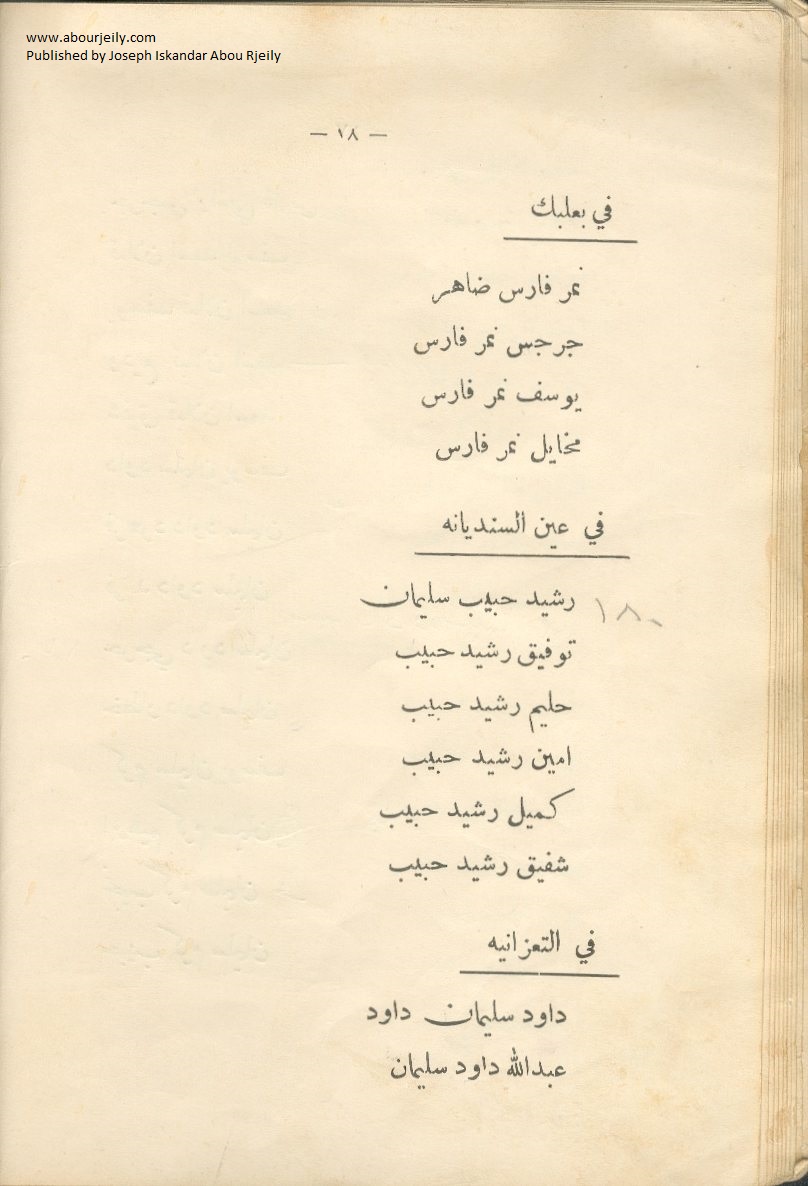 www.abourjeily.com
Published by Joseph Iskandar Abou Rjeily
— ١٨ —
في بعلبك
نمر فارس ضاهر
جرجس نمر فارس
يوسف نمر فارس
مخايل نمر فارس
في عين السنديانه
رشيد حبيب سليمان ١٨٠
توفيق رشيد حبيب
حليم رشيد حبيب
امين رشيد حبيب
كميل رشيد حبيب
شفيق رشيد حبيب
في التعزانيه
داود سليمان داود
عبدالله داود سليمان